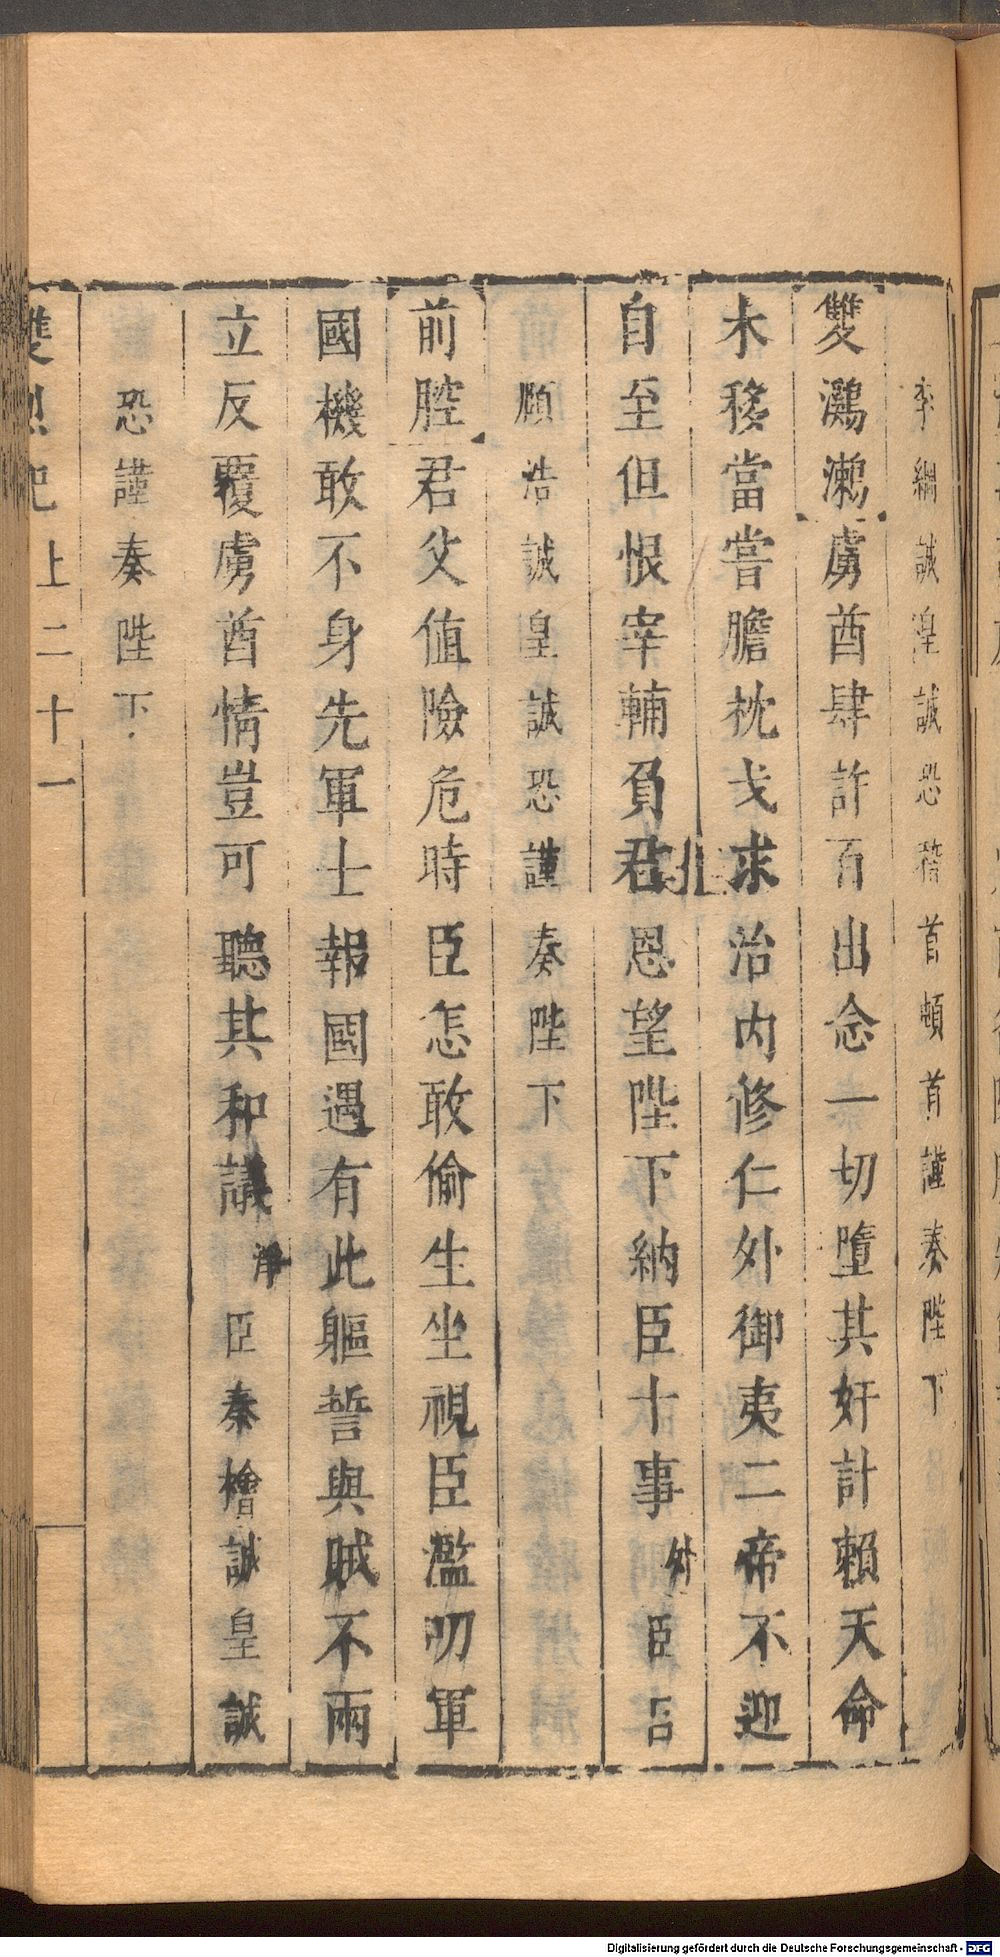 李綱誠惶誠恐稽首頓首謹奏陛下
雙鸂𪆟虜酋肆詐百出念一切墮其奸計賴天命
未移當嘗膽枕戈求治內修仁外御夷二帝不迎
自至但恨宰輔負君恩望陛下納臣十事外臣呂
頤浩誠皇誠恐謹奏陛下
前腔君父值險危時臣怎敢偷生坐視臣濫叨軍
國機敢不身先軍士報國遇有此軀誓與賊不兩
立反覆虜酋情豈可聽其和議淨臣秦檜誠皇誠
恐謹奏陛下
雙烈記上二十一
Digitalisierung gefördert durch die Deutsche Forschungsgemeinschaft - DFG